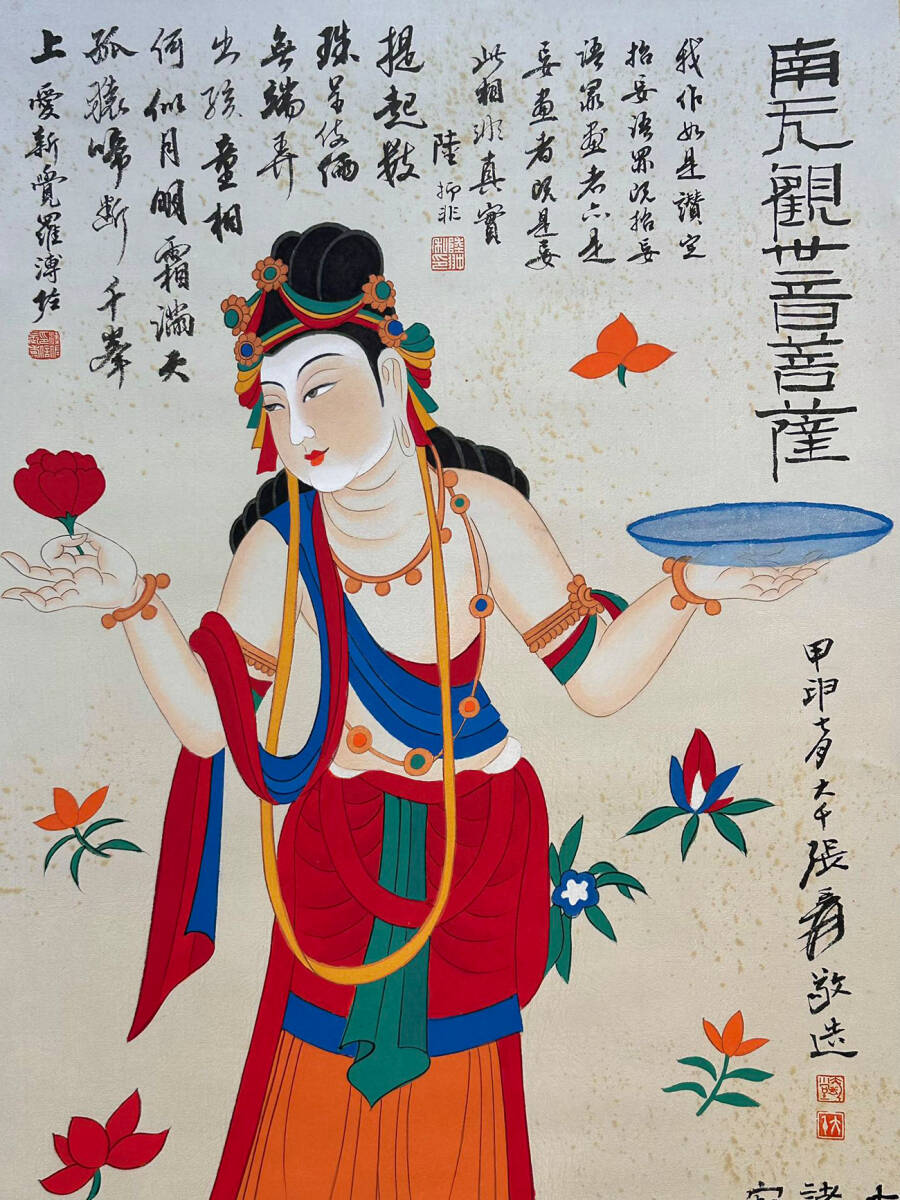 南无觀世音菩薩
我作如是讚定
招妄语罪既招妄
语罪畫者亦是
妄畫者既是妄
此相非真實
陸抑非
提起数
珠呈伎俩
無端弄
出孩童相
何似月明霜滿天
孤猿啼断千峯
上愛新覺羅溥佺
甲申七月大千張爰敬造